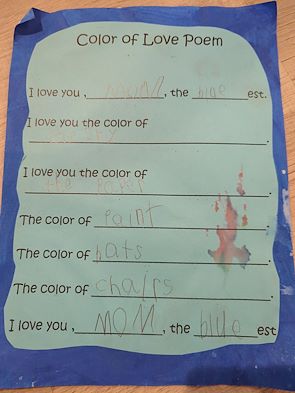 Color of Love Poem
I love you , MOM, the blue est.
I love you the color of
the sky .
I love you the color of
the paper .
The color of paint .
The color of hats .
The color of chairs .
I love you , MOM, the blue est